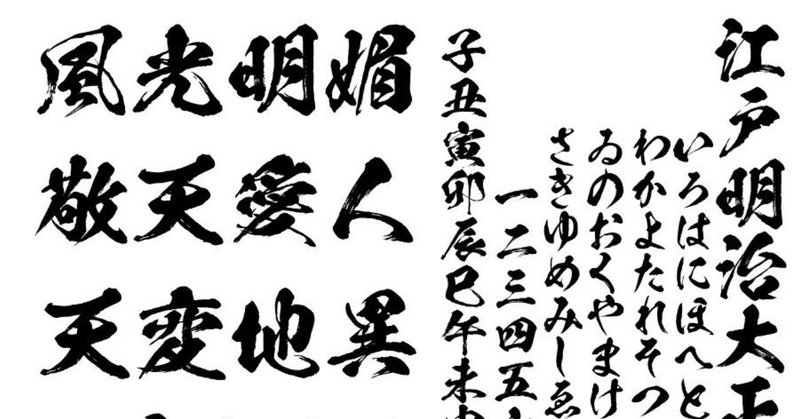 江戸明治大正
いろはにほへと
わかよたれそつ
ゐのおくやまけ
さきゆめみしゑ
一二三四五
子丑寅卯辰巳午未
風光明媚
敬天愛人
天変地異